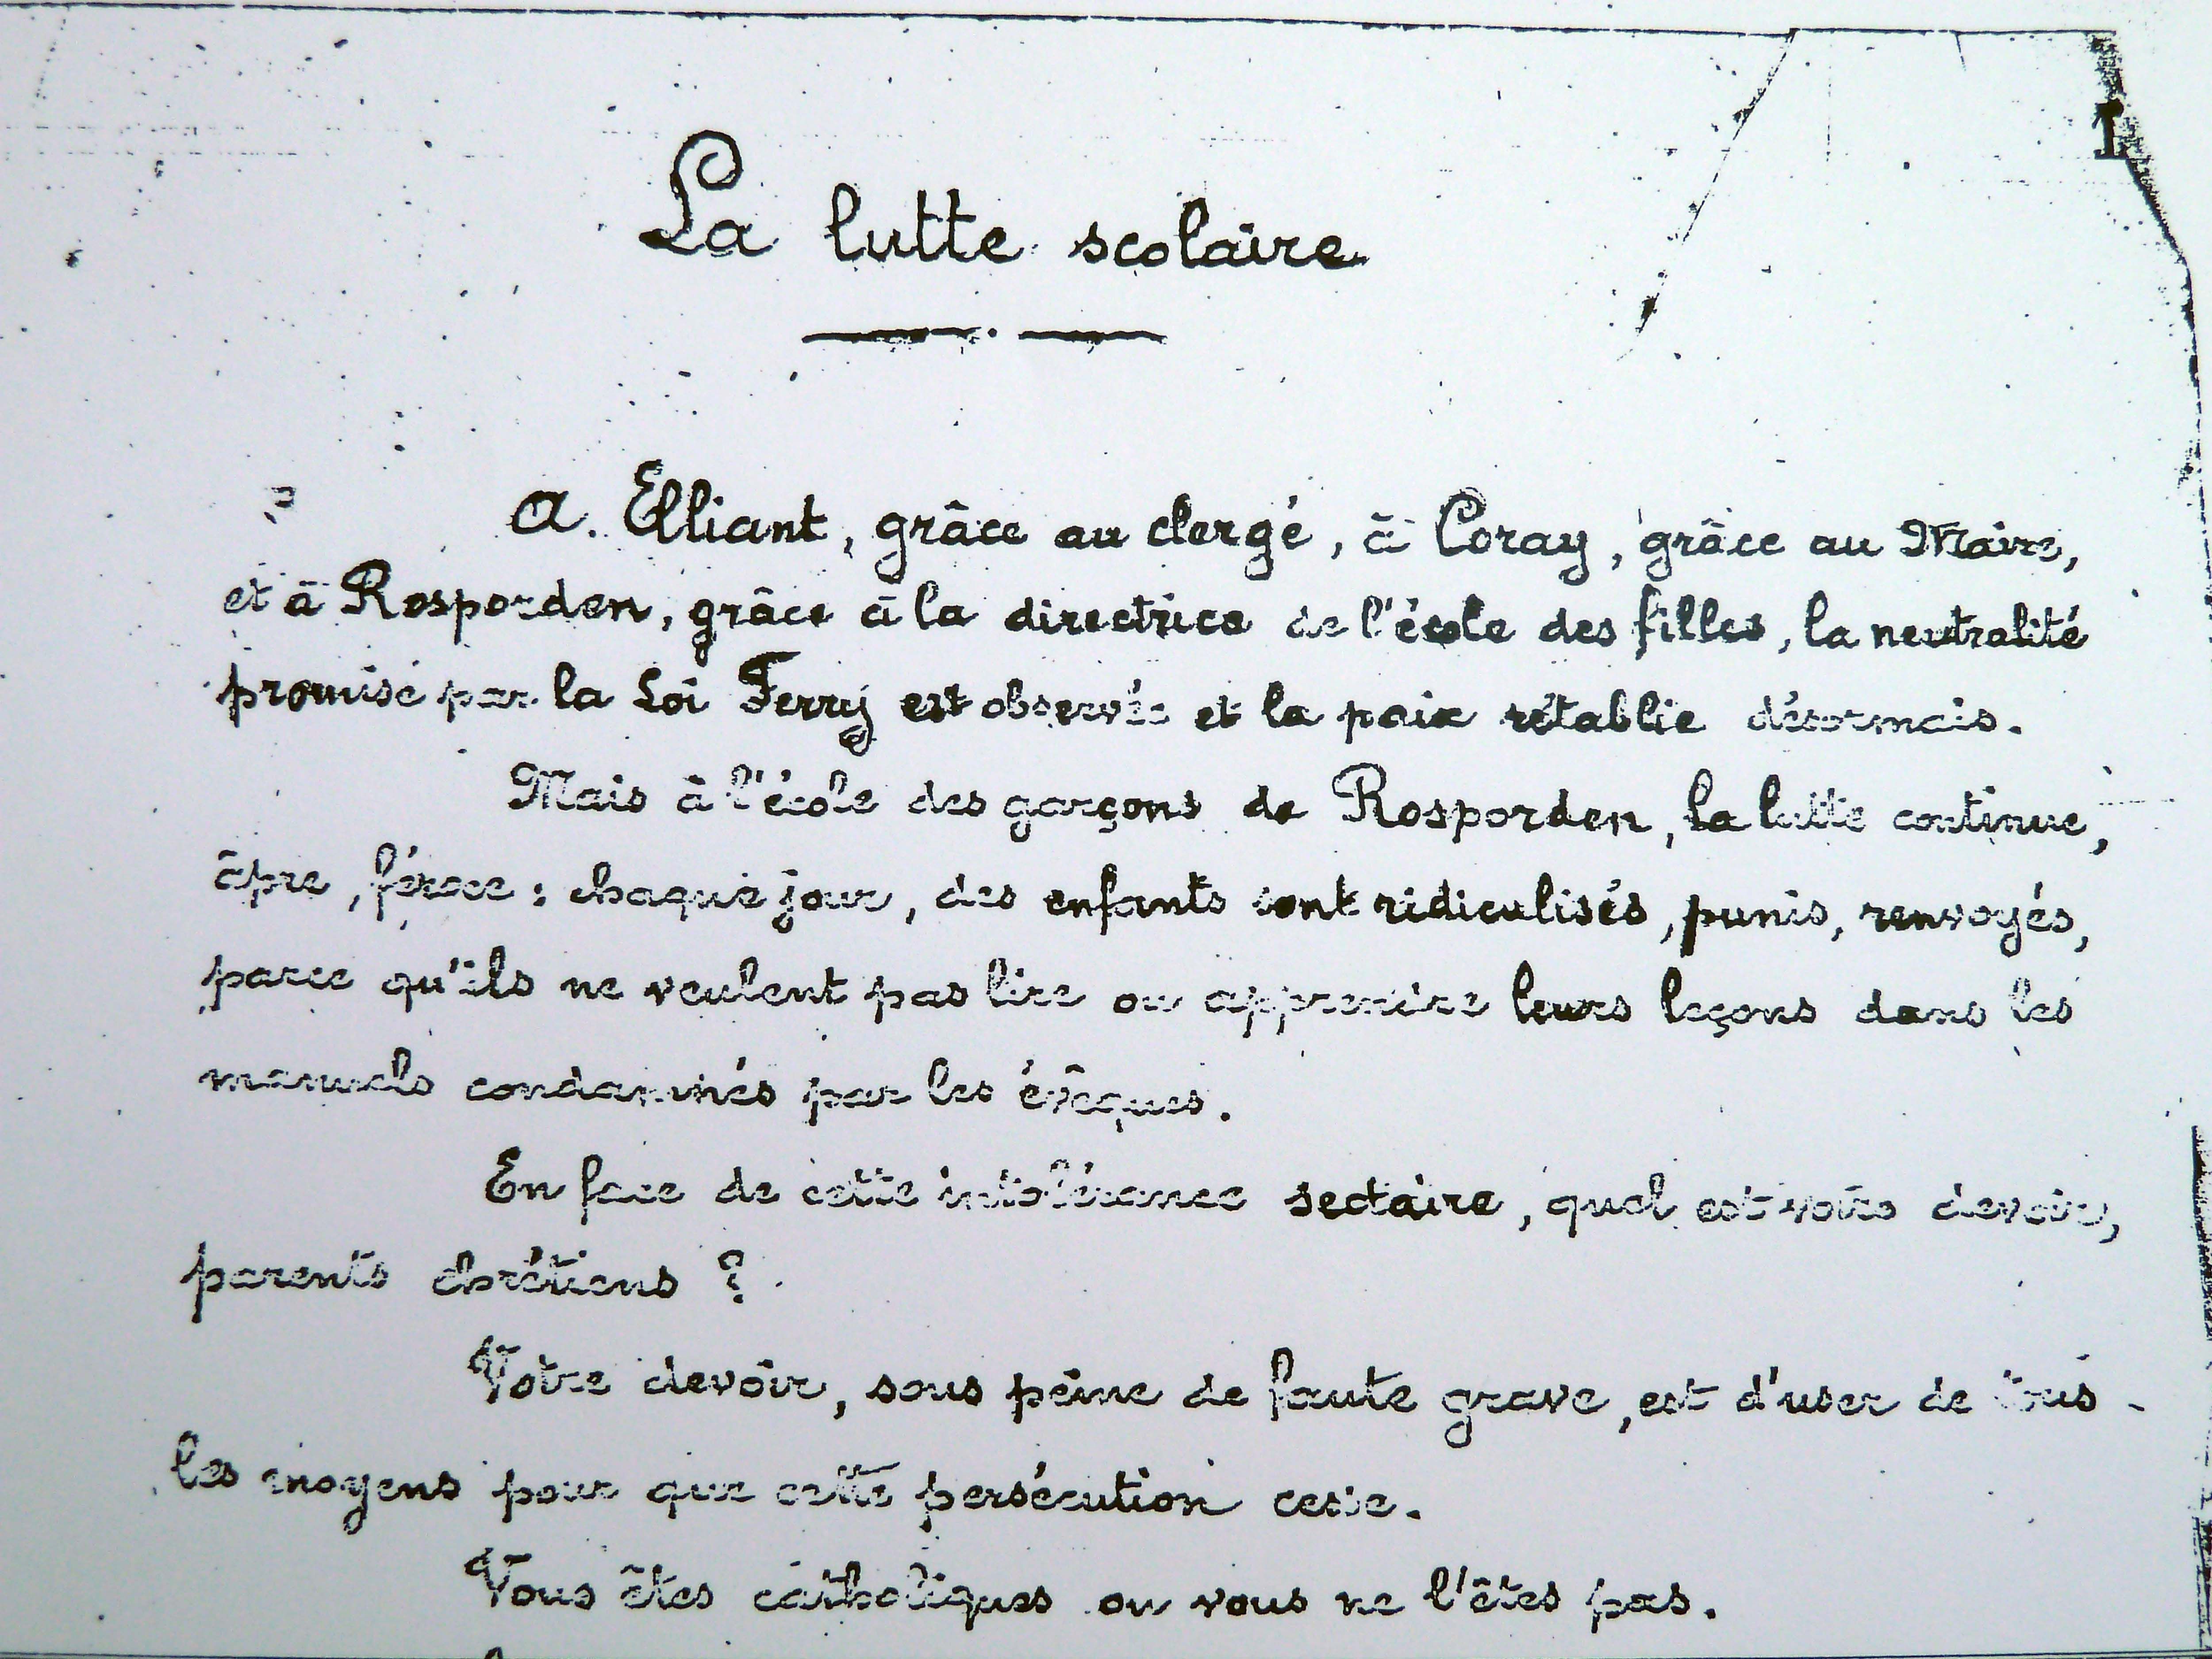 La lutte scolaire
A Elliant, grâce au clergé, à Coray, grâce au Maire,
et à Rosporden, grâce à la directrice de l'école des filles, la neutralité
promise par la Loi Ferry est observée et la paix rétablie désormais.
Mais à l'école des garçons de Rosporden, la lutte continue,
âpre, féroce : chaque jour, des enfants sont ridiculisés, punis, renvoyés,
parce qu'ils ne veulent pas lire ou apprendre leurs leçons dans les
manuels condamnés par les évêques.
En face de cette intolérance sectaire, quel est votre devoir,
parents chrétiens ?
Votre devoir, sous peine de faute grave, est d'user de tous
les moyens pour que cette persécution cesse.
Vous êtes catholiques ou vous ne l'êtes pas.